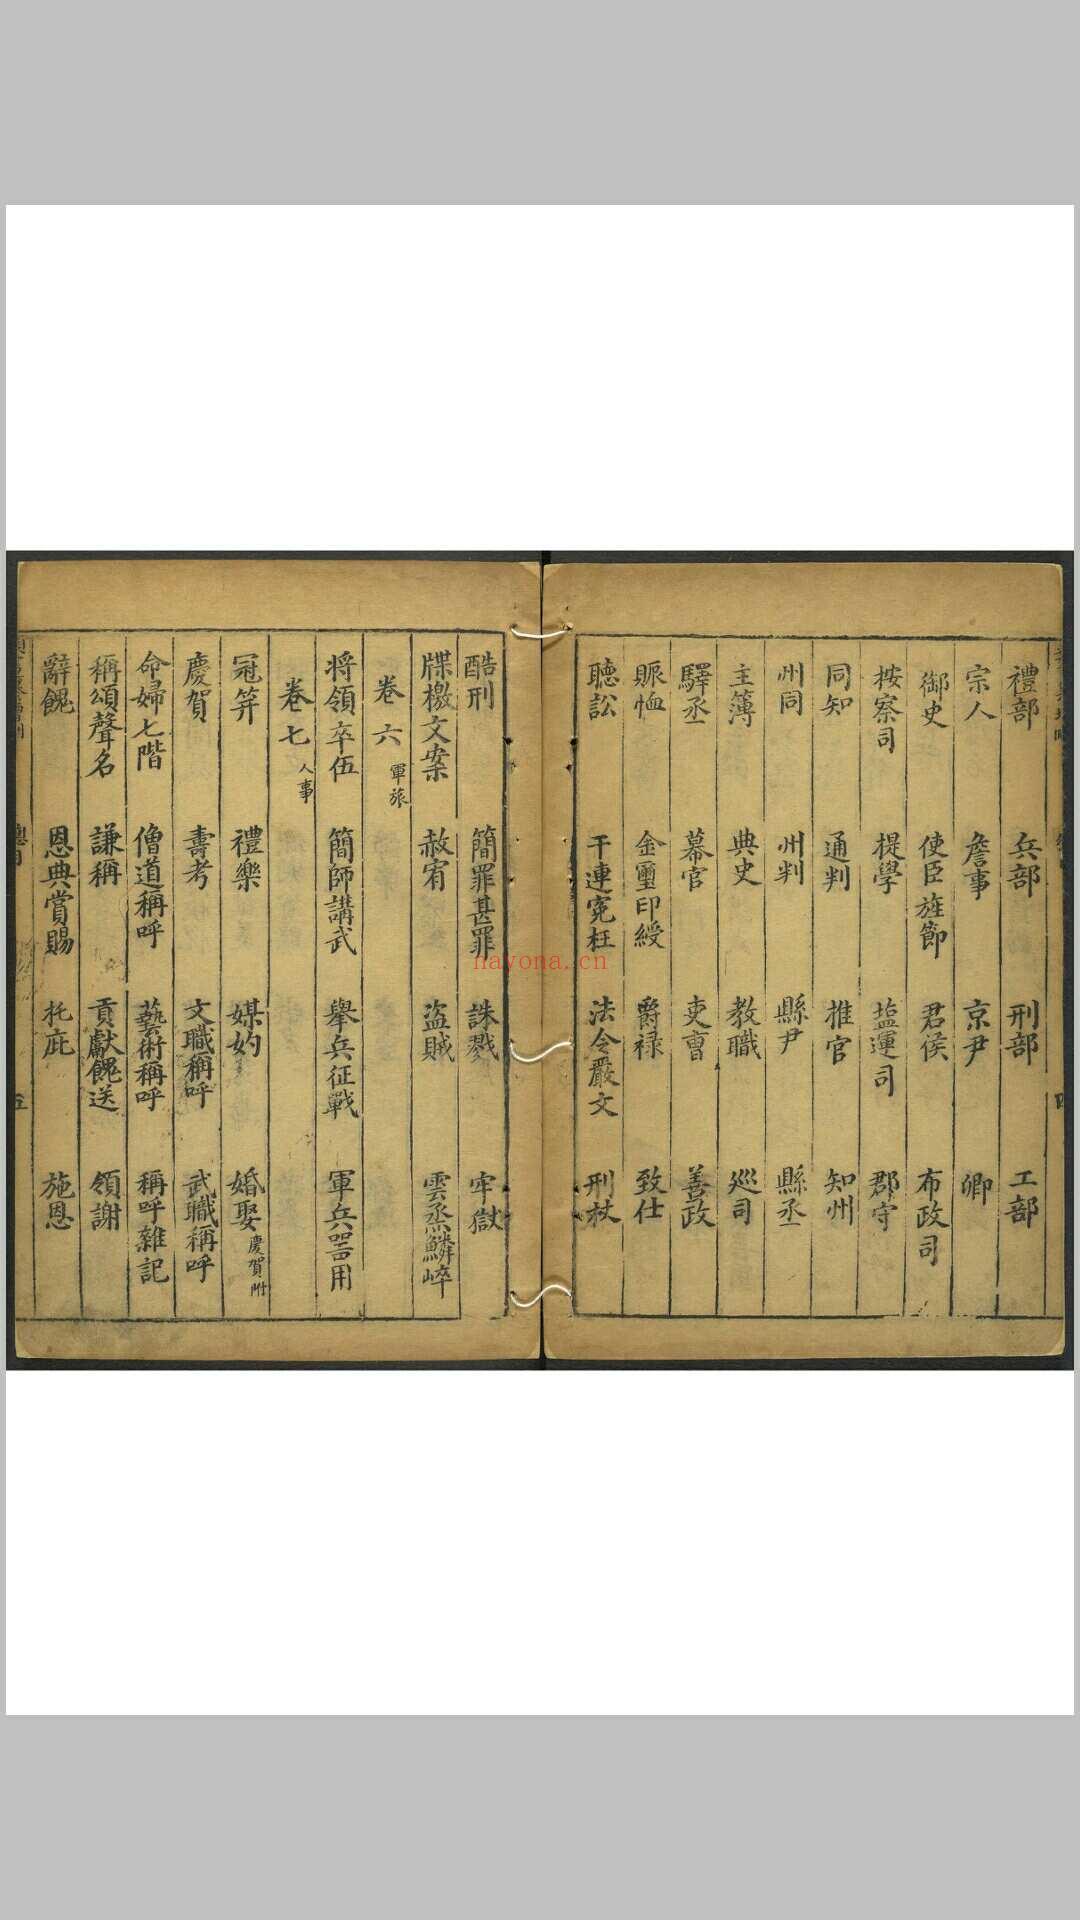 禮部 兵部 刑部 工部
宗人 詹事 京尹 卿
御史 使臣旌節 君侯 布政司
按察司 提學 塩運司 郡守
同知 通判 推官 知州
州同 州判 縣尹 縣丞
主簿 典史 教職 巡司
驛丞 幕官 吏曹 善政
賑恤 金璽印綬 爵禄 致仕
聽訟 干連寃枉 法令嚴文 刑杖
酷刑 簡罪甚罪 誅戮 牢獄
牒檄文案 赦宥 盜賊 雲烝鱗崒
卷六 軍旅
将領卒伍 簡師講武 舉兵征戰 軍兵器用
卷七 人事
冠笄 禮樂 媒妁 婚娶 慶賀附
慶賀 壽考 文職稱呼 武職稱呼
命婦七階 僧道稱呼 藝術稱呼 稱呼雜記
稱頌聲名 謙稱 貢獻餽送 領謝
辭餽 恩典賞賜 托庇 施恩
總目 五
nayona.cn